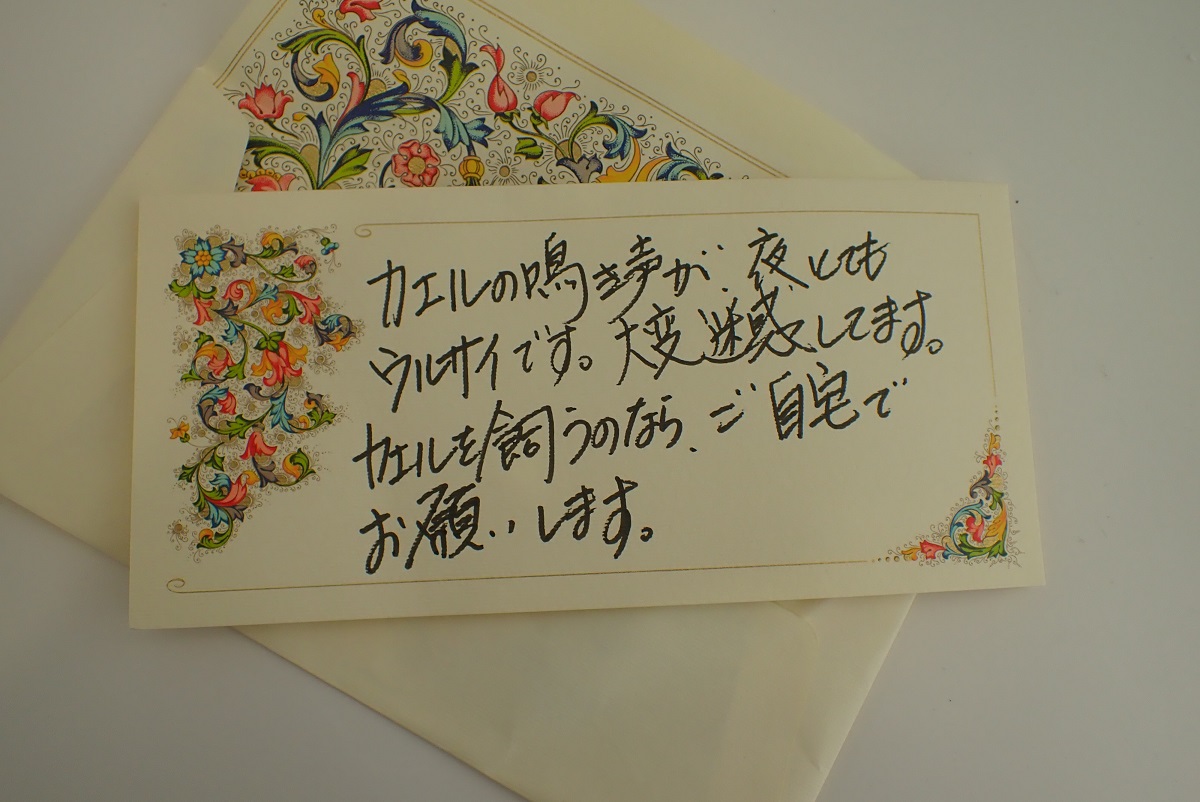 カエルの鳴き声が、夜とても
ウルサイです。大変迷惑してます。
カエルを飼うのなら、ご自宅で
お願いします。